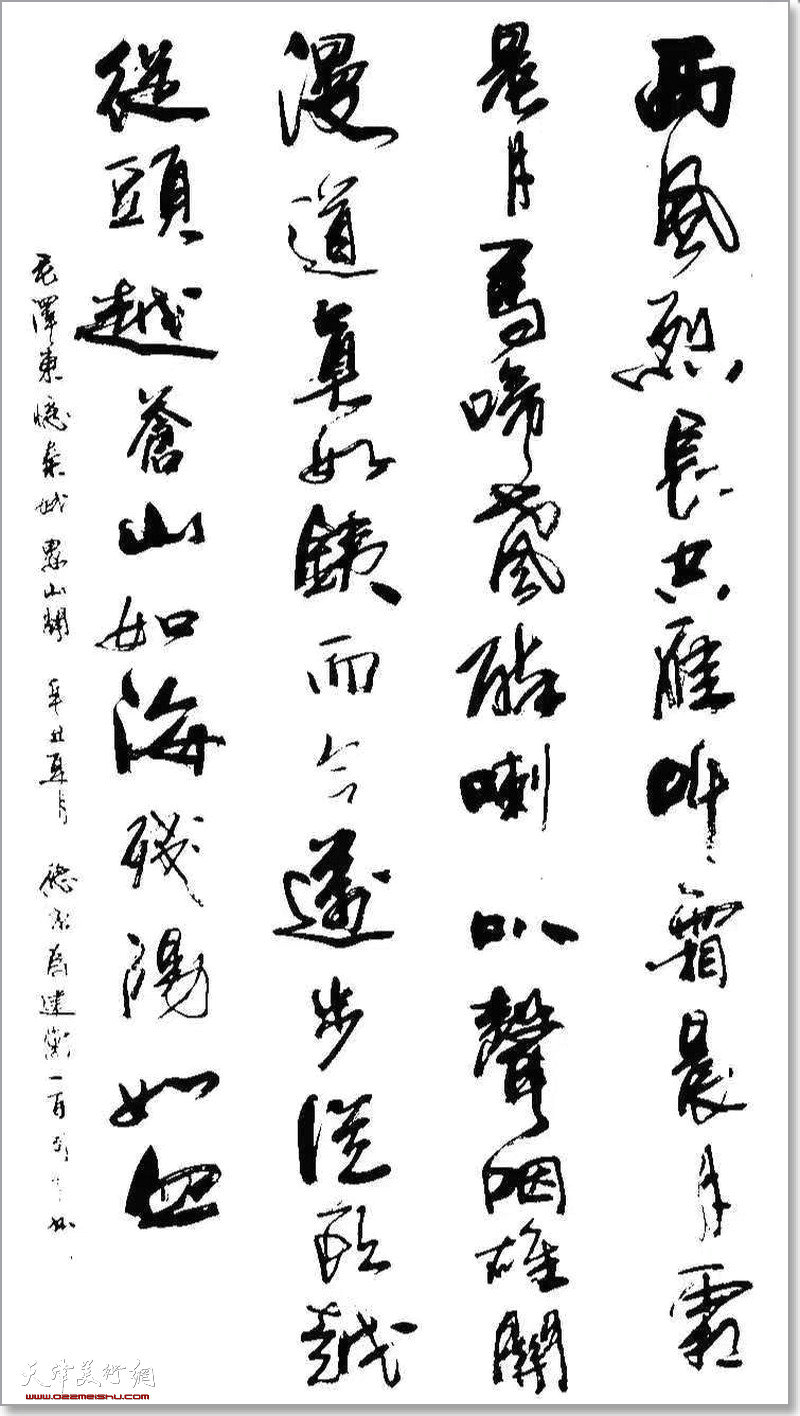 西風烈長空雁叫霜晨月霜
晨月馬啼聲碎喇叭聲咽雄關
漫道真如鐵而今邁步從頭越
從頭越蒼山如海殘陽如血
毛澤東憶秦娥婁山關 辛丑夏月 為建黨一百周年
天津美術網
www.022meishu.com